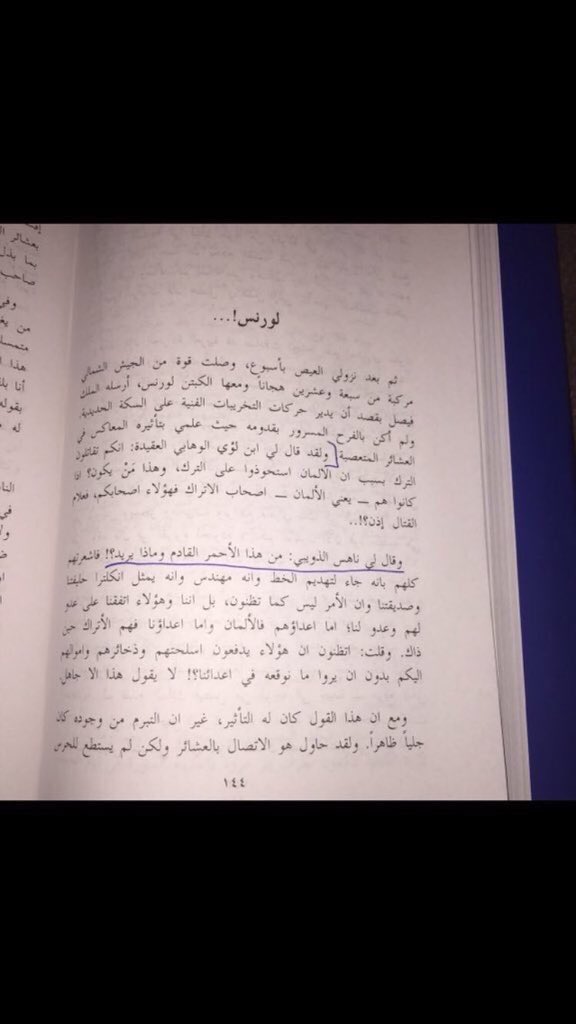 لورنس!...
ثم بعد نزولي العيص بأسبوع، وصلت قوة من الجيش الشمالي
مركبة من سبعة وعشرين هجاناً ومعها الكبتن لورنس، أرسله الملك
فيصل بقصد أن يدير حركات التخريبات الفنية على السكة الحديدية.
ولم أكن بالفرح المسرور بقدومه حيث علمي بتأثيره المعاكس في
العشائر المتعصبة ولقد قال لي ابن لؤي الوهابي العقيدة: انكم تقاتلون
الترك بسبب ان الألمان استحوذوا على الترك، وهذا مَنْ يكون؟ اذا
كانوا هم ــ يعني الألمان ــ اصحاب الاتراك فهؤلاء اصحابكم، فعلام
القتال إذن؟!..
وقال لي ناهس الذويبي: من هذا الأحمر القادم وماذا يريد؟! فاشعرتهم
كلهم بانه جاء لتهديم الخط وانه مهندس وانه يمثل انكلترا حليفتنا
وصديقتنا وان الأمر ليس كما تظنون، بل اننا وهؤلاء اتفقنا على عدو
لهم وعدو لنا؛ اما اعداؤهم فالألمان واما اعداؤنا فهم الأتراك حين
ذاك. وقلت: اتظنون ان هؤلاء يدفعون اسلحتهم وذخائرهم واموالهم
اليكم بدون ان يروا ما نوقعه في اعدائنا؟! لا يقول هذا الا جاهل.
ومع ان هذا القول كان له التأثير، غير ان التبرم من وجوده كان
جلياً ظاهراً. ولقد حاول هو الاتصال بالعشائر ولكن لم يستطع للحرس
١٤٤